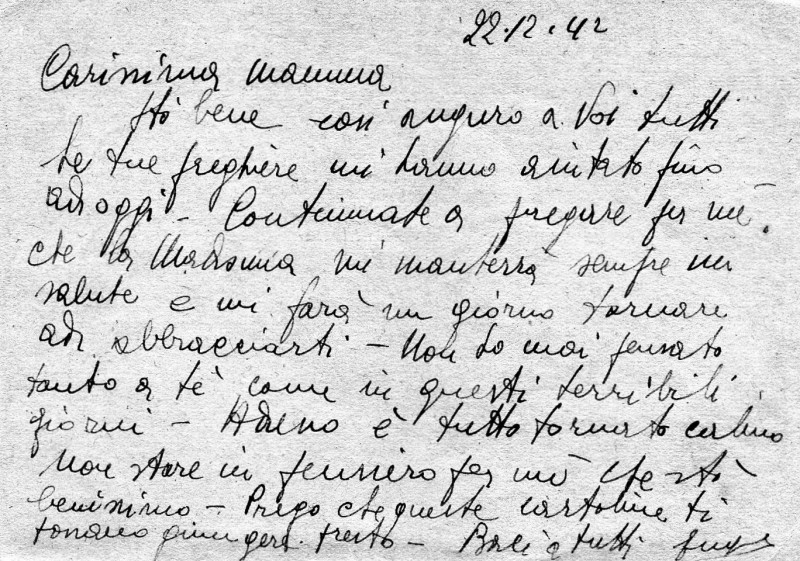 22.12.42
Carissima Mamma
Stò bene così auguro a Voi tutti
le tue preghiere mi hanno aiutato fino
ad oggi - Continuate a pregare per mè.
che la Madonna mi manterrà sempre in
salute e mi farà un giorno tornare
ad abbracciarti - Non ho mai pensato
tanto a tè come in questi terribili
giorni - Adesso è tutto tornato calmo
Non stare in pensiero per mè che stò
benissimo - Prego che queste cartoline ti
possano giungere presto - Baci a tutti